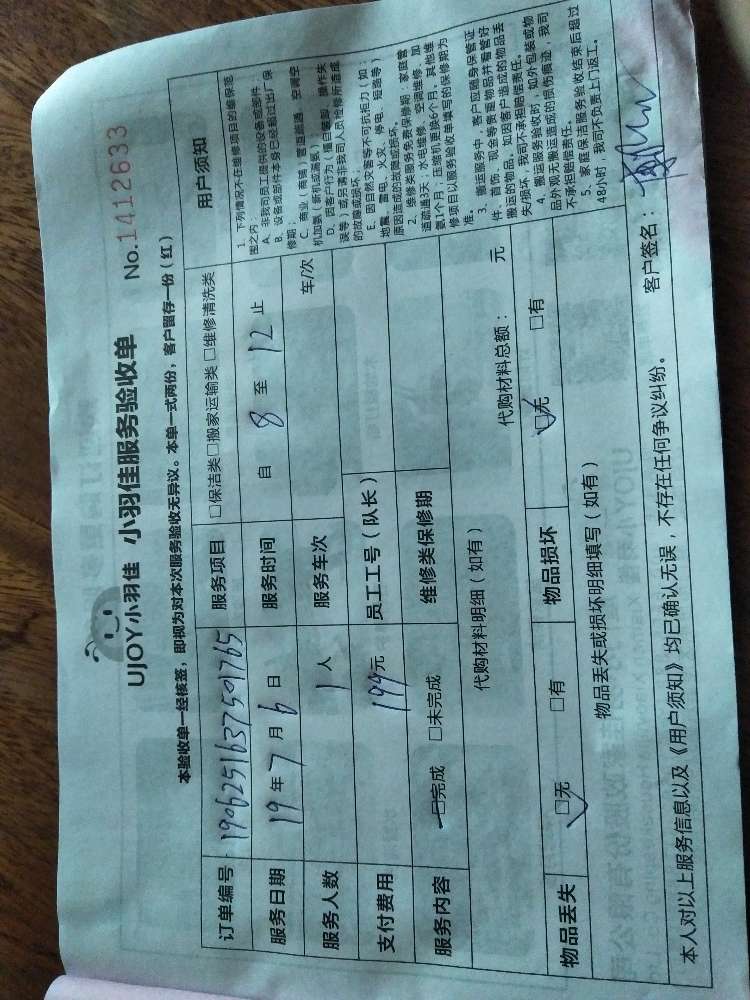 UJOY小羽佳 小羽佳服务验收单 No.1412633
本验收单一经核签，即视为对本次服务验收无异议。本单一式两份，客户留存一份（红）
订单编号 1906251637501765 服务项目 □保洁类□搬家运输类□维修清洗类
服务日期 19年7月6日 服务时间 自 8 至 12 止
服务人数 1人 服务车次 车/次
支付费用 199元 员工工号（队长）
服务内容 □完成 □未完成 维修类保修期
代购材料明细（如有）
代购材料总额： 元
物品丢失 □无 □有 物品损坏 □无 □有
物品丢失或损坏明细填写（如有）
用户须知
1、下列情况不在维修项目的维保范
围之内：
A、非我司员工提供的设备或部件
B、设备或部件本身已经超过出厂保
修期；
C、商业（商铺）管道疏通、空调空
机加氨（新机或漏氨）
D、因客户行为（擅自置卸、操作失
误等）或另请非我司人员检修所造成
的故障或损坏；
E、因自然灾害等不可抗拒力（如：
地震、雷电、火灾、停电、短路等）
原因造成的故障或损坏。
2、维修类服务免费保修期：家庭管
道疏通3天，水电维修、空调维修、加
氨1个月；压缩机更换6个月，其他维
修项目以服务验收单填写的保修期为
准。
3、搬运服务中，客户应随身保管证
件、首饰、现金等贵重物品并看管好
搬运的物品。如因客户造成的物品丢
失/损坏，我司不承担赔偿责任。
4、搬运服务验收时，如外包装或物
品外观无搬运造成的损伤痕迹，我司
不承担赔偿责任。
5、家庭保洁服务验收结束后超过
48小时，我司不负责上门返工。
本人对以上服务信息以及《用户须知》均已确认无误，不存在任何争议纠纷。 客户签名：